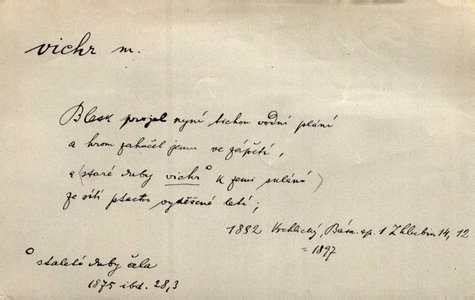 vichr m.
Blesk projel nyní tichou vodní plání
a hrom zahučel jemu ve zápětí,
a (staré duby vichr° k zemi sklání)
že sítí ptactvo vyděšené letí;
1882 Vrchlický, Bás. ep. 1 Z hlubin 14, 12
= 1897
° staleté duby čela
1875 ibd. 28,3